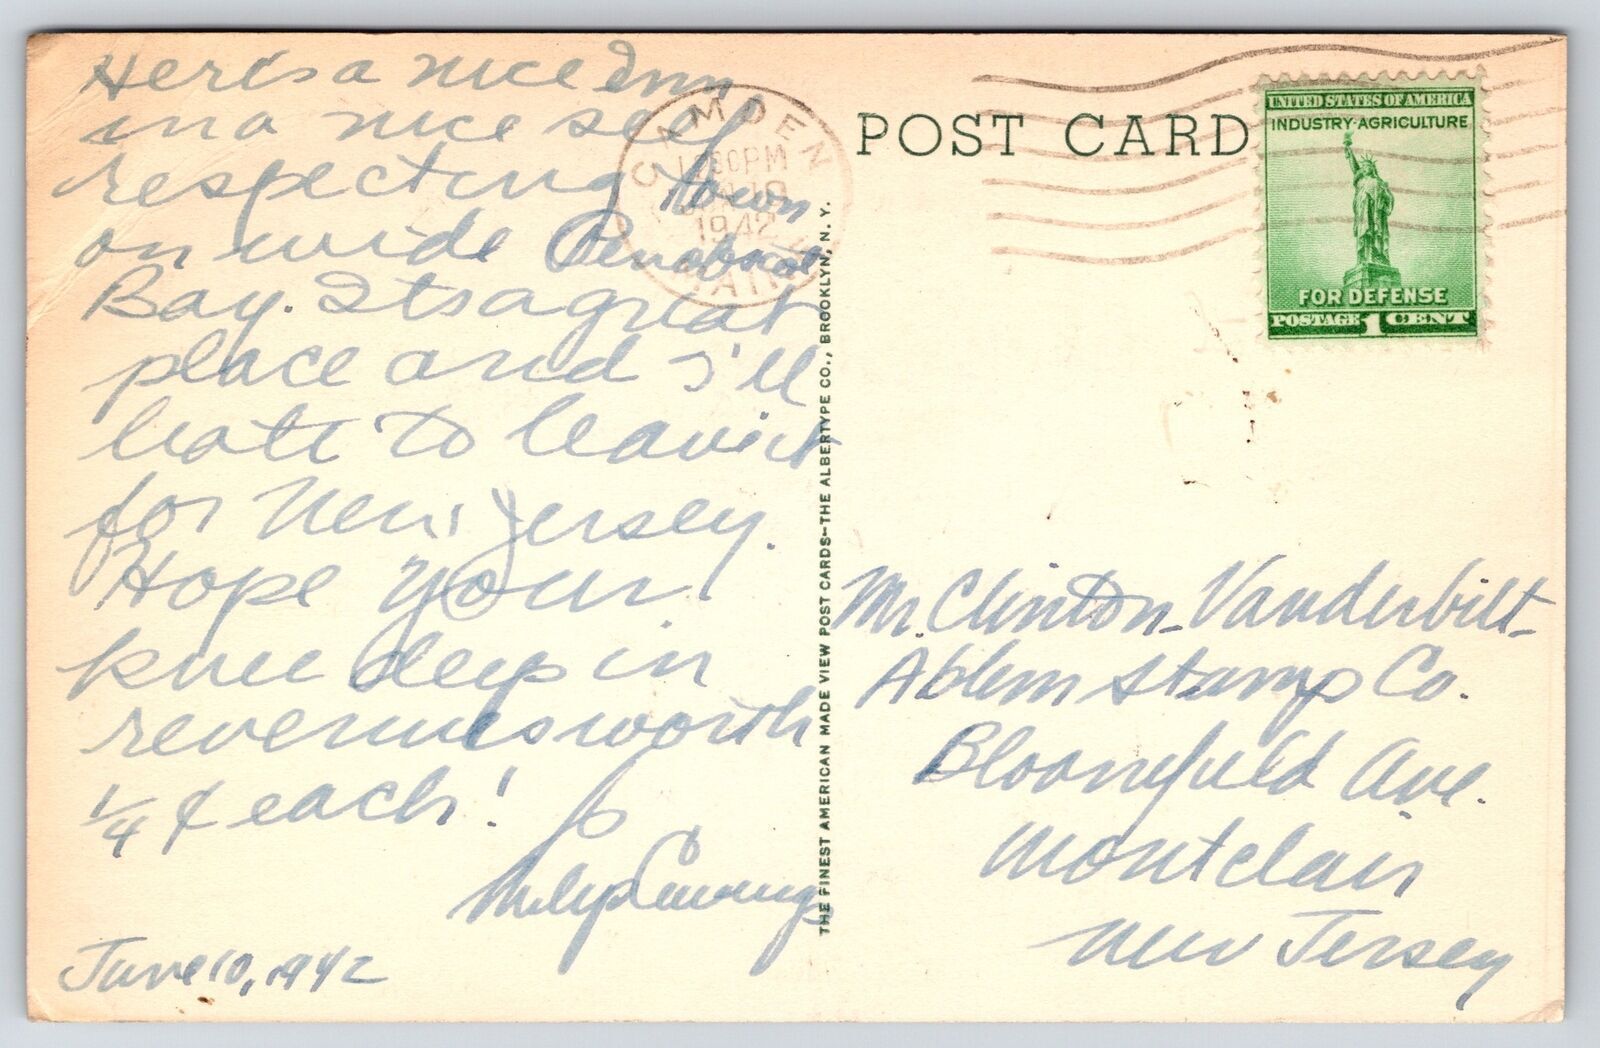 Here's a nice Inn
in a nice self
respecting town
on wide Penobscot
Bay. Its a great
place and I'll
hate to leave it
for New Jersey.
Hope your
knee deep in
revenues worth
1/4 ¢ each!
June 10, 1942
CAMDEN
1942
MAINE
POST CARD
UNITED STATES OF AMERICA
INDUSTRY-AGRICULTURE
FOR DEFENSE
POSTAGE 1 CENT
THE FINEST AMERICAN MADE VIEW POST CARDS—THE ALBERTYPE CO., BROOKLYN, N. Y.
Mr. Clinton Vanderbilt-
Stamp Co.
Bloomfield Ave.
Montclair
New Jersey